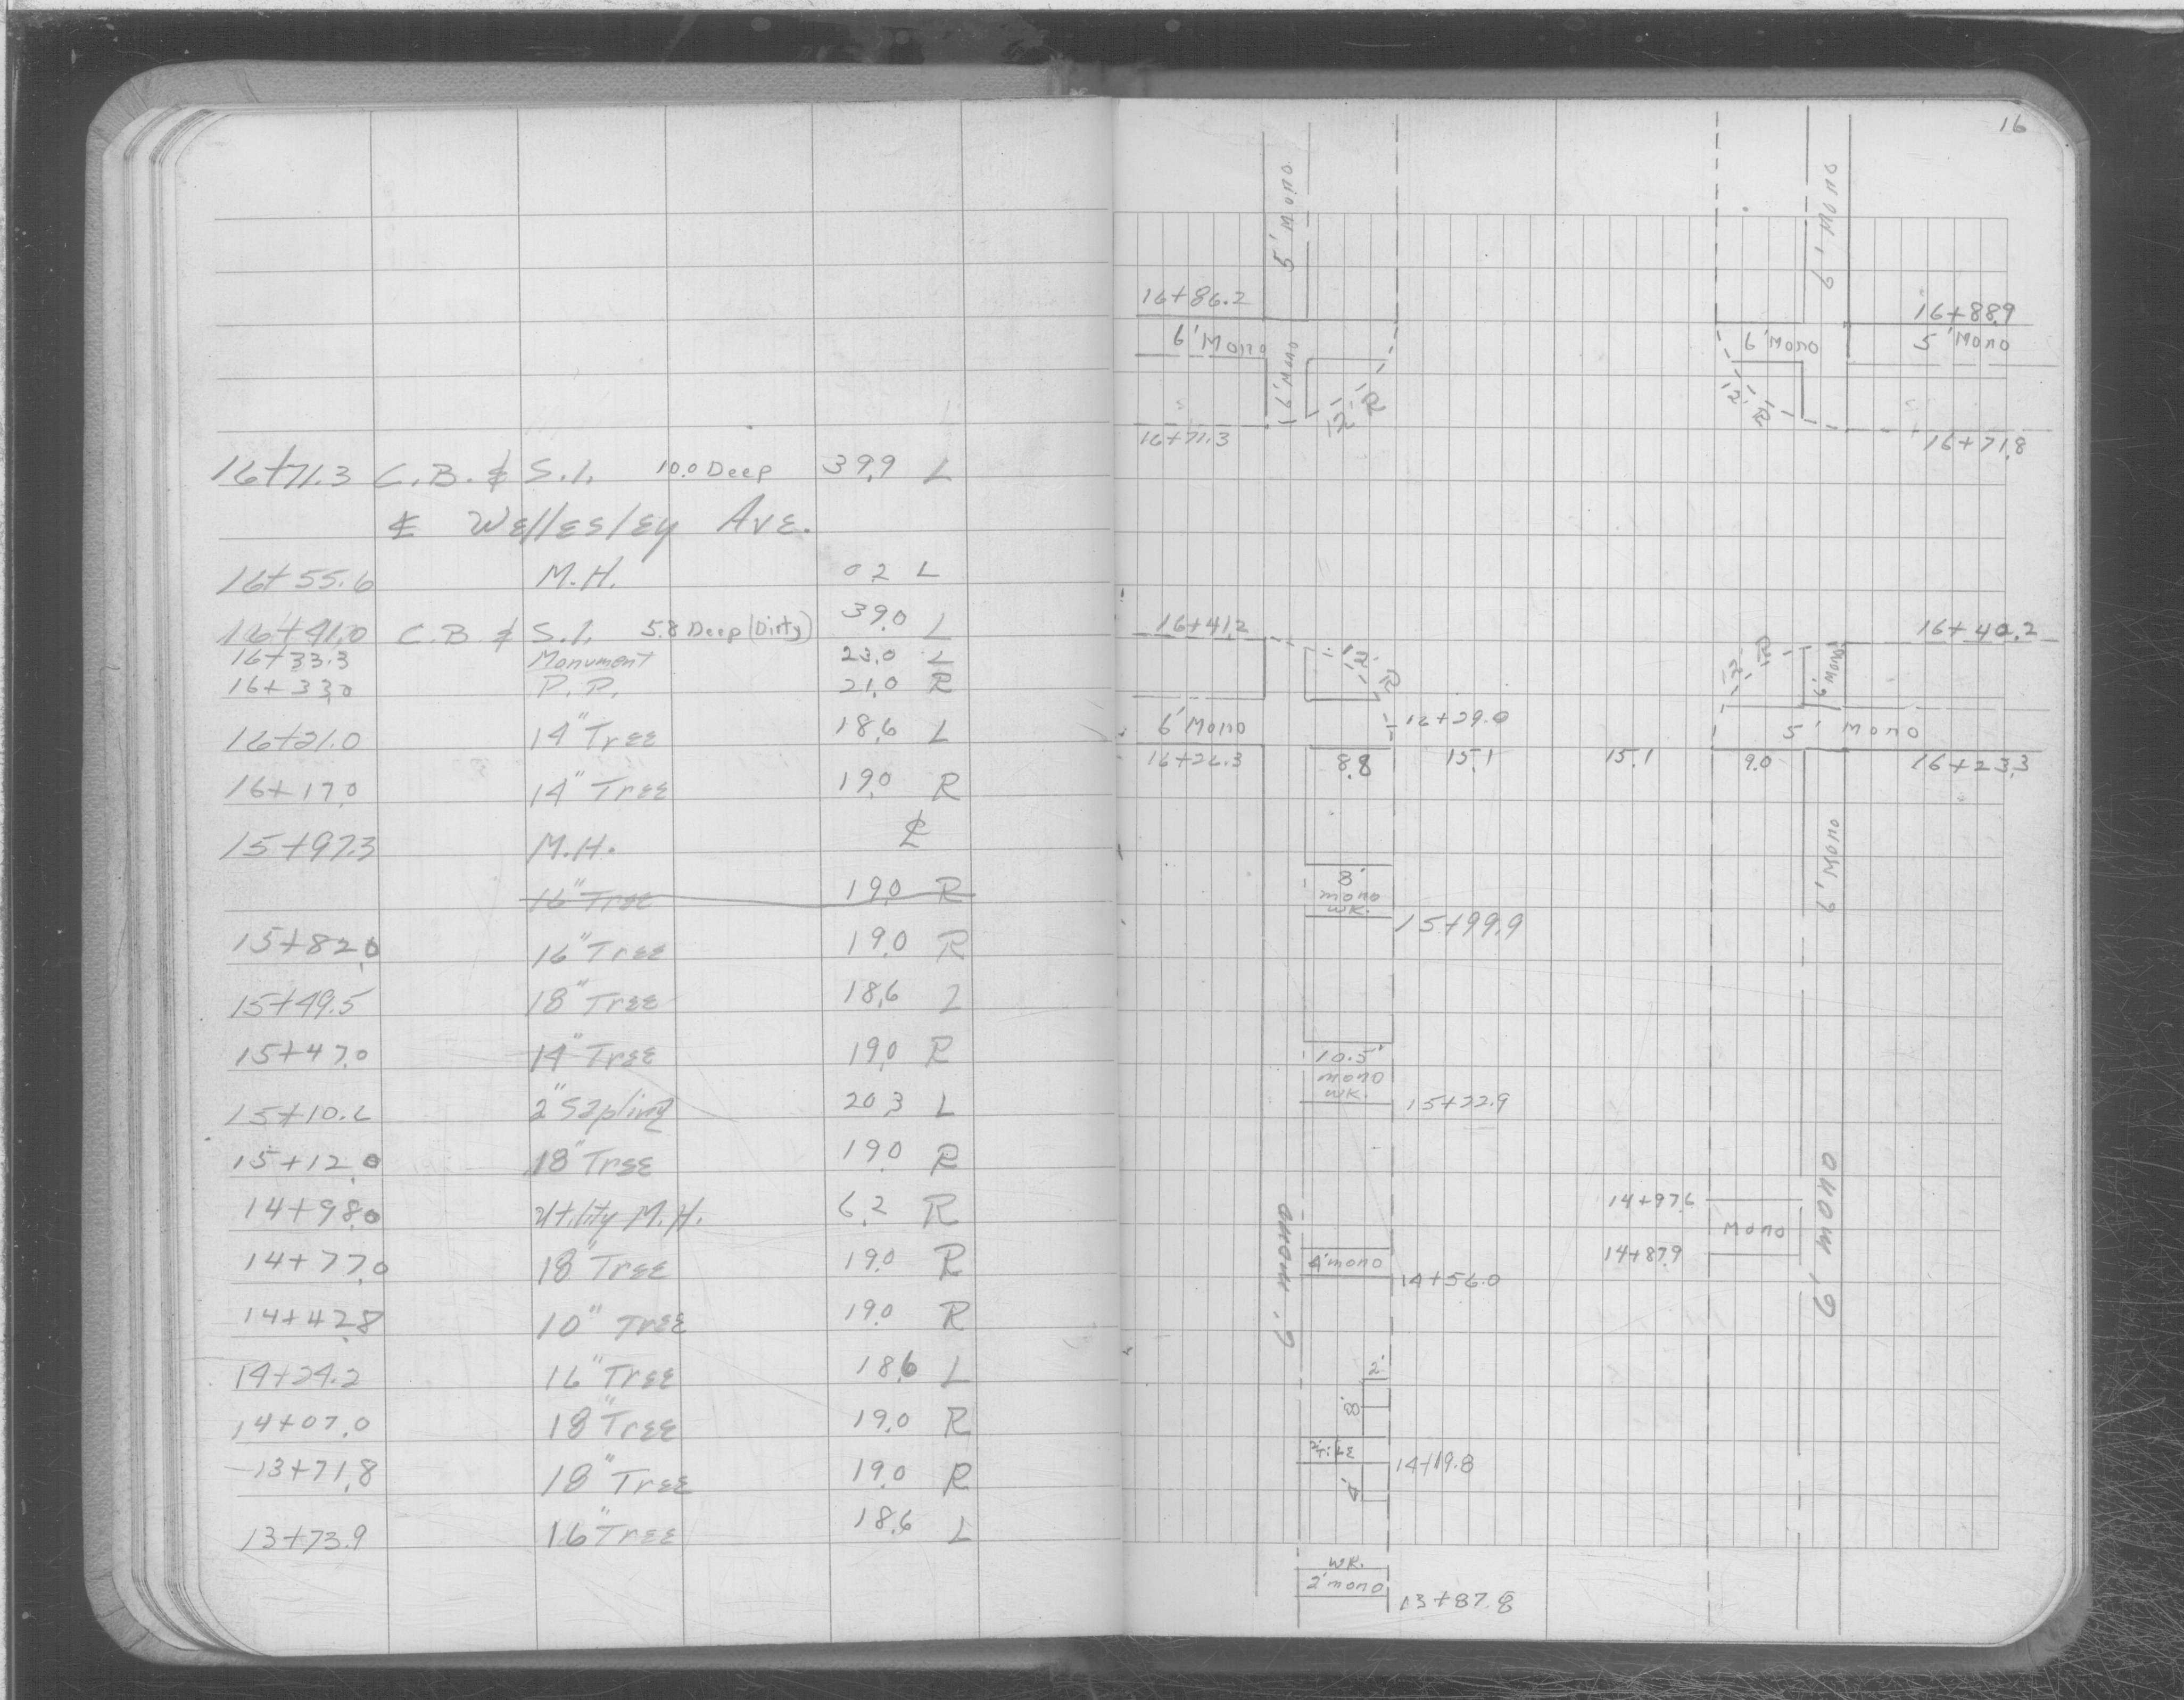 16+71.3 C.B. & S.I. 10.0 Deep 39.9 L
℄ Wellesley Ave.
16+55.6 M.H. 0.2 L
16+41.0 C.B & S.I. 5.8 Deep (Dirty) 39.0 L
16+33.3 Monument 23.0 L
16+33.0 P.P. 21.0 R
16+21.0 14" Tree 18.6 L
16+17.0 14" Tree 19.0 R
15+97.3 M.H. ℄
16" Tree 19.0 R
15+82.0 16" Tree 19.0 R
15+49.5 18" Tree 18.6 L
15+47.0 14" Tree 19.0 R
2" Sapling 20.3 L
15+12.0 18" Tree 19.0 R
14+98.0 Utility M.H. 6.2 R
14+77.0 18" Tree 19.0 R
14+42.8 10" Tree 19.0 R
14+24.2 16" Tree 18.6 L
14+07.0 18" Tree 19.0 R
13+71.8 18" Tree 19.0 R
13+73.9 16" Tree 18.6 L
16
5' Mono
6' Mono
16+86.2
16+88.9
6' Mono
6' Mono
12' R
6' Mono
12' R
5' Mono
16+71.3
16+71.8
16+41.2
16+40.2
12' R
12' R
6' Mono
6' Mono
16+29.0
5' Mono
16+26.3
8.8
15.1
15.1
9.0
16+23.3
6' Mono
8'
mono
wk.
15+99.9
10.5'
mono
wk.
15+22.9
6' mono
6' mono
14+97.6
Mono
14+87.9
4' mono
14+56.0
2'
8'
2' Tile
14+19.8
4'
wk.
2' mono
13+87.8